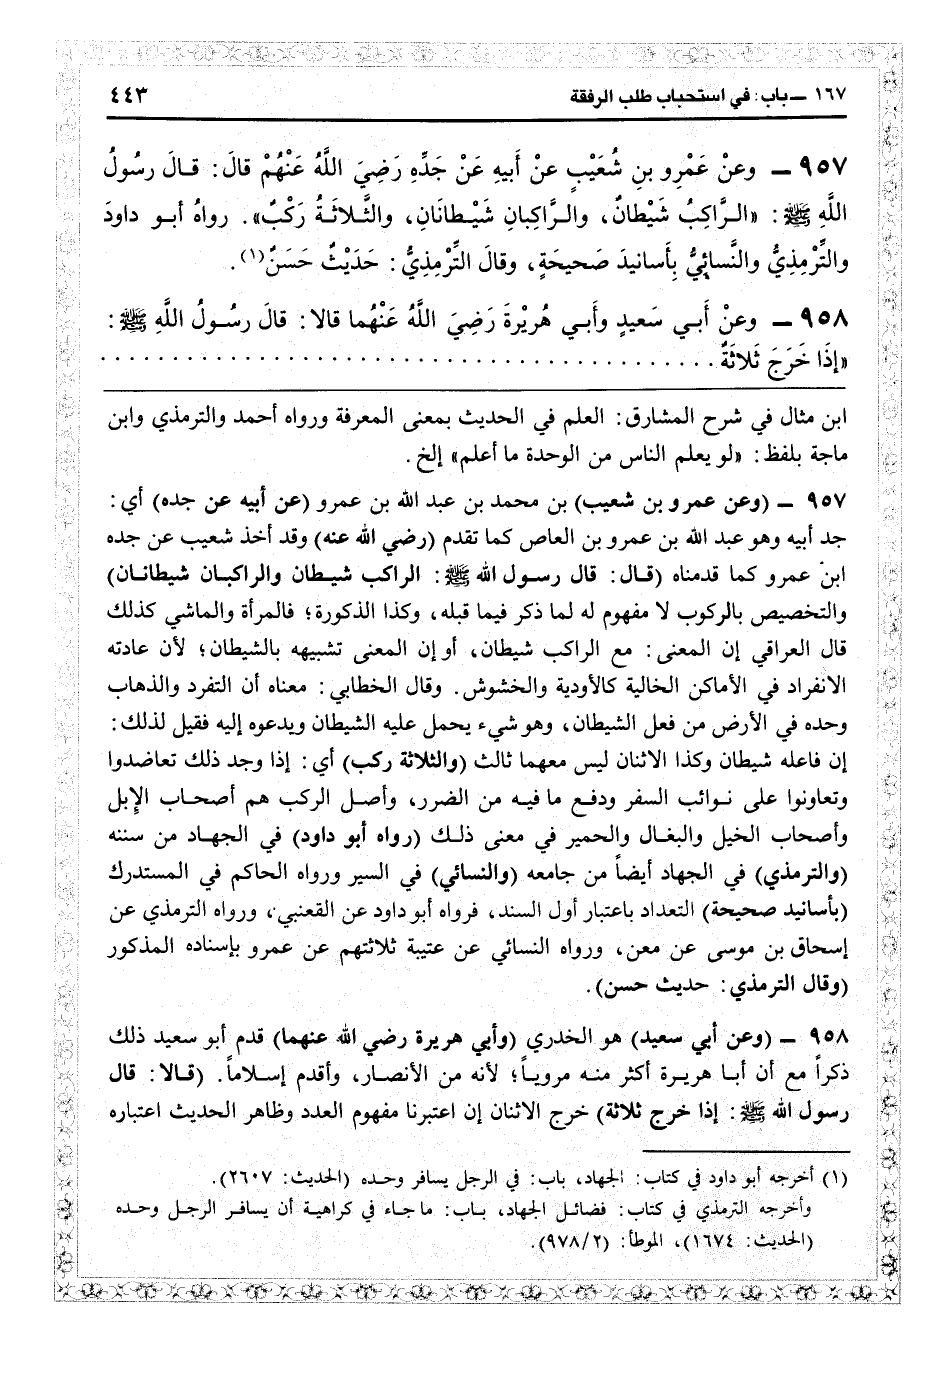 ١٦٧ ــ باب: في استحباب طلب الرفقة ٤٤٣
٩٥٧ ــ وعنْ عَمْرِو بنِ شُعَيْبٍ عنْ أَبيهِ عَنْ جَدِّهِ رَضِيَ اللَّهُ عَنْهُمْ قالَ: قـالَ رسُولُ
اللَّهِ ﷺ: «الـرَّاكِبُ شَيْطانٌ، والـرَّاكِبانِ شَيْـطانَانِ، والثَّلاثَـةُ رَكْبٌ». رواهُ أبـو داودَ
والتِّرْمِذيُّ والنَّسائِيُّ بِأَسانيدَ صَحيحَةٍ، وقالَ التِّرْمِذِيُّ: حَدَيْثٌ حَسَنٌ(١).
٩٥٨ ــ وعنْ أَبـي سَعيدٍ وأَبـي هُرَيْرةَ رَضِيَ اللَّهُ عَنْهُما قالا: قالَ رسُـولُ اللَّهِ ﷺ:
«إذَا خَرَجَ ثَلاثَةٌ . . . . . . . . . . . . . . . . . . . . . . . . . . . . . . . . . . . . . . . . . .
ابن مثال في شرح المشارق: العلم في الحديث بمعنى المعرفة ورواه أحمد والترمذي وابن
ماجة بلفظ: «لو يعلم الناس من الوحدة ما أعلم» إلخ.
٩٥٧ ــ (وعن عمرو بن شعيب) بن محمد بن عبد الله بن عمرو (عن أبيه عن جده) أي:
جد أبيه وهو عبد الله بن عمرو بن العاص كما تقدم (رضي الله عنه) وقد أخذ شعيب عن جده
ابن عمرو كما قدمناه (قـال: قال رسـول الله ﷺ: الراكب شيـطان والراكبـان شيطانـان)
والتخصيص بالركوب لا مفهوم له لما ذكر فيما قبله، وكذا الذكورة؛ فالمرأة والماشي كذلك
قال العراقي إن المعنى: مع الراكب شيطان، أو إن المعنى تشبيهه بالشيطان؛ لأن عادته
الانفراد في الأماكن الخالية كالأودية والخشوش. وقال الخطابي: معناه أن التفرد والذهاب
وحده في الأرض من فعل الشيطان، وهو شيء يحمل عليه الشيطان ويدعوه إليه فقيل لذلك:
إن فاعله شيطان وكذا الاثنان ليس معهما ثالث (والثلاثة ركب) أي: إذا وجد ذلك تعاضدوا
وتعاونوا على نـوائب السفر ودفـع ما فيـه من الضرر، وأصـل الركب هم أصحـاب الإبل
وأصحاب الخيل والبغـال والحمير في معنى ذلـك (رواه أبو داود) في الجهـاد من سننه
(والترمذي) في الجهاد أيضاً من جامعه (والنسائي) في السير ورواه الحاكم في المستدرك
(بأسانيد صحيحة) التعداد باعتبار أول السند، فرواه أبو داود عن القعنبي، ورواه الترمذي عن
إسحاق بن موسى عن معن، ورواه النسائي عن عتيبة ثلاثتهم عن عمرو بإسناده المذكور
(وقال الترمذي: حديث حسن).
٩٥٨ ــ (وعن أبي سعيد) هو الخدري (وأبي هريرة رضي الله عنهما) قدم أبو سعيد ذلك
ذكراً مع أن أبـا هريـرة أكثر منـه مرويـاً؛ لأنه من الأنصـار، وأقدم إسـلاماً. (قـالا: قال
رسول الله ﷺ: إذا خرج ثلاثة) خرج الاثنان إن اعتبرنا مفهوم العدد وظاهر الحديث اعتباره
(١) أخرجه أبو داود في كتاب: الجهاد، باب: في الرجل يسافر وحده (الحديث: ٢٦٠٧).
وأخرجه الترمذي في كتاب: فضائـل الجهاد، بـاب: ما جـاء في كراهيـة أن يسافـر الرجـل وحده
(الحديث: ١٦٧٤)، الموطأ: (٩٧٨/٢).